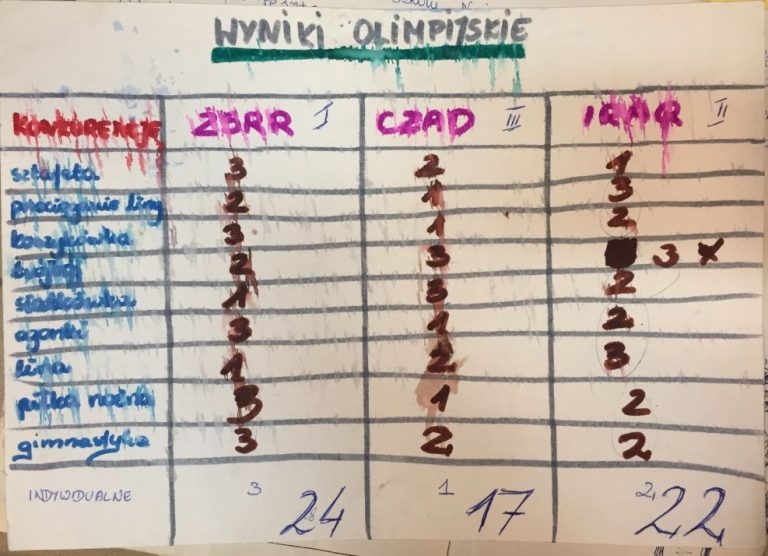 WYNIKI OLIMPIJSKIE
KONKURENCJE ŻBRR I CZAD III IGHG II
sztafeta 3 2 1
przeciąganie liny 2 1 3
koszykówka 3 1 2
2 3 3 x
siatkówka 1 3 2
ogonki 3 1 2
lina 1 2 3
piłka nożna 3 1 2
gimnastyka 3 2 2
INDYWIDUALNE 3 24 1 17 2 22